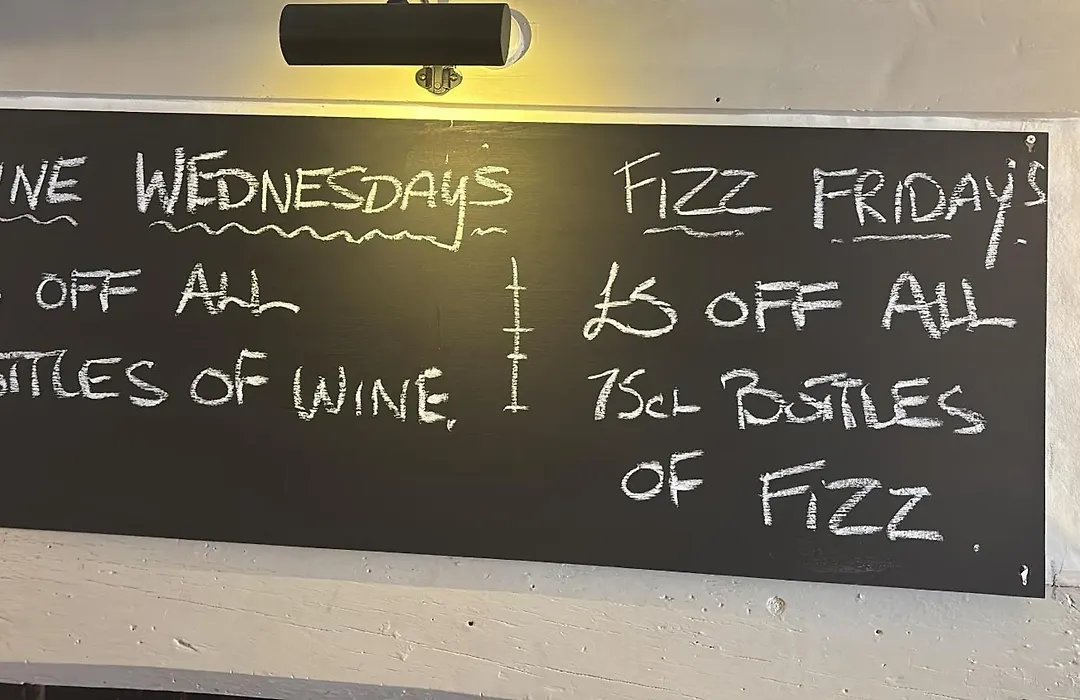 INE WEDNESDAY'S
OFF ALL
BOTTLES OF WINE.
FIZZ FRIDAY'S
£5 OFF ALL
75CL BOTTLES
OF FIZZ.